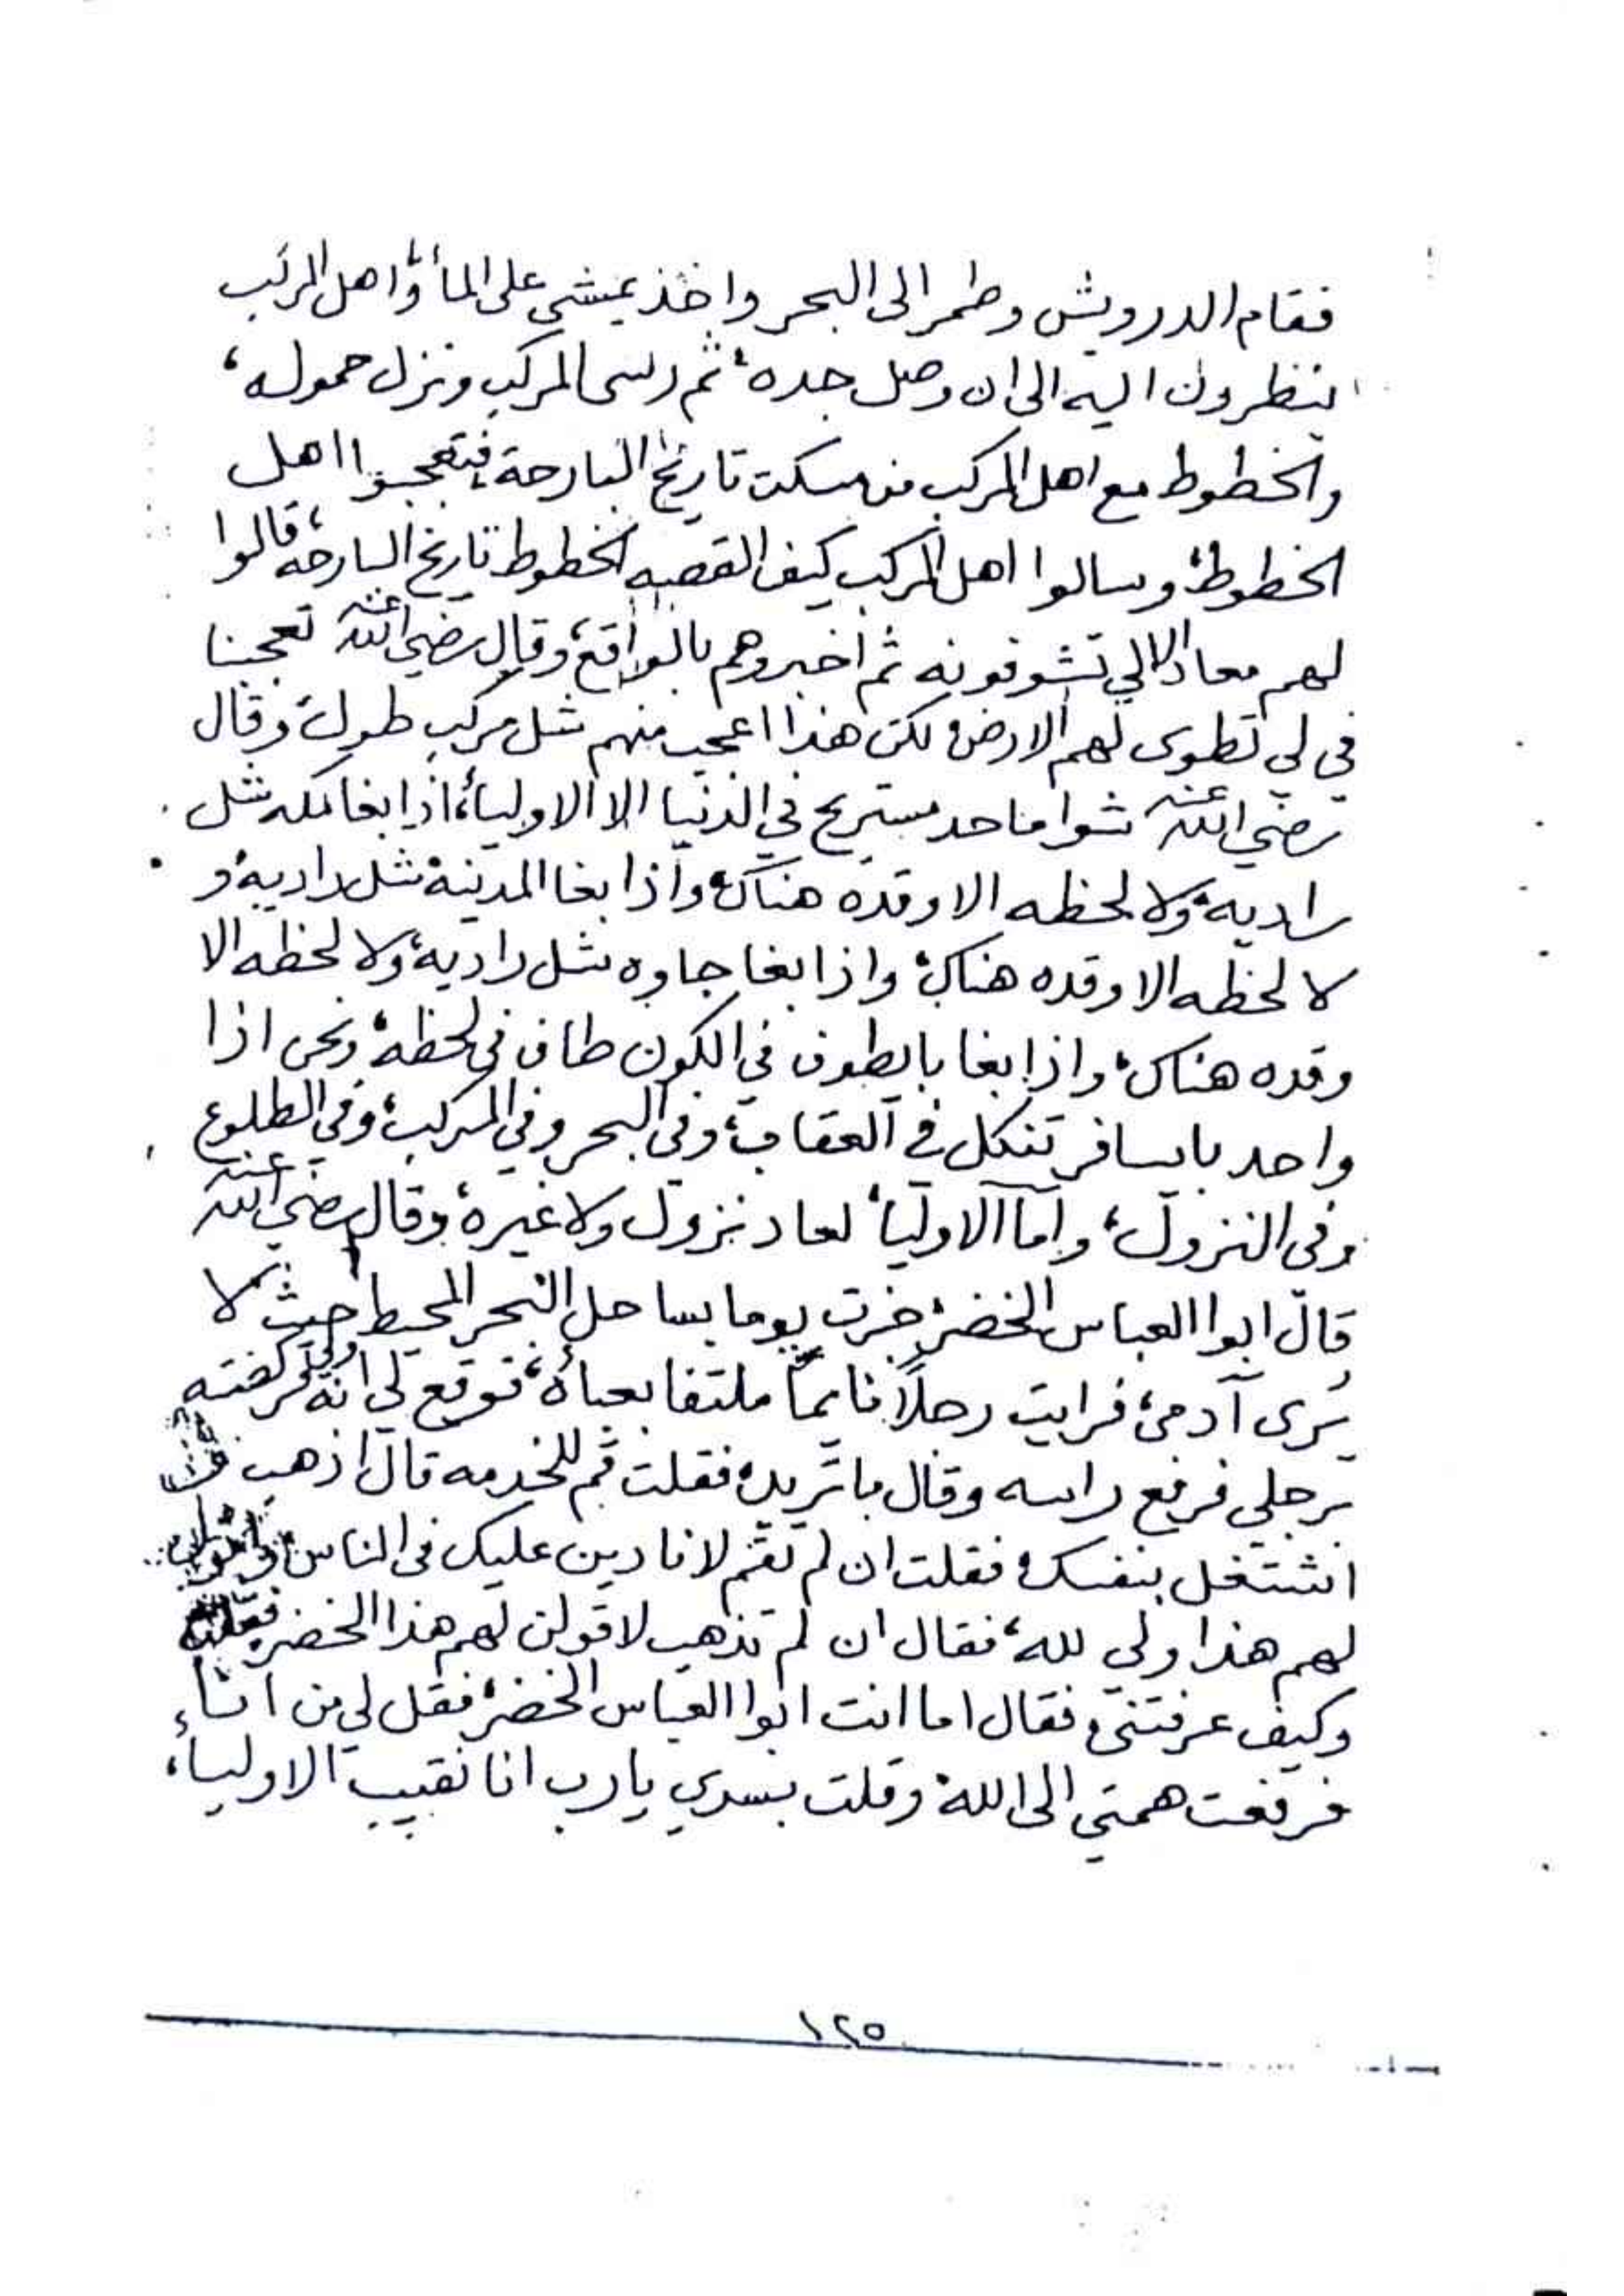 فقام الدرويش وطمر الى البحر واخذ يمشي على المأ وأهل المركب
ينظرون اليه الى ان وصل جده، ثم رسى المركب ونزل حموله،
والخطوط مع اهل المركب من مسكت تاريخ البارحة، فتعجبوا اهل
الخطوط، وسالوا اهل المركب كيف القصيه الخطوط تاريخ البارحه، قالوا
لهم معاد الا لي تشوفونه ثم اخبروهم بالواقع، وقال رضي الله عنه تعجبنا
في لي تطوى لهم الارض، لكن هذا اعجب منهم شل مركب طول، وقال
رضي الله عنه شوا ما حد مستريح في الدنيا الا الاوليأ، اذا بغا مكه شل
راديه، ولا لحظه الا وقده هناك، واذا بغا المدينة شل راديه، و
لا لحظه الا وقده هناك، واذا بغا جاوه شل راديه، ولا لحظه الا
وقده هناك، واذا بغا بايطوف في الكون طاف في لحظه، ونحن اذا
واحد بايسافر تنكل في العقاب، وفي البحر وفي المركب، وفي الطلوع
وفي النزول، واما الاوليأ، لعاد نزول ولا غيره، وقال رضي الله عنه
قال ابوا العباس الخضر، خرت يوما بساحل البحر المحيط حيث لا
يُرى آدمي، فرايت رجلاً نايماً ملتفا بعبأة، فوقع لي انه ولي فركضته
برجلي فرفع راسه وقال ما تريد، فقلت قم للخدمه قال اذهب
اشتغل بنفسك، فقلت ان لم تقم لانادين عليك في الناس، واقول
لهم هذا ولي لله، فقال ان لم تذهب لاقولن لهم هذا الخضر، فقلت
وكيف عرفتني، فقال اما انت ابوا العباس الخضر، فقل لي من انا،
فرفعت همتي الى الله، وقلت بسري يارب انا نقيب الاوليأ،
١٢٥